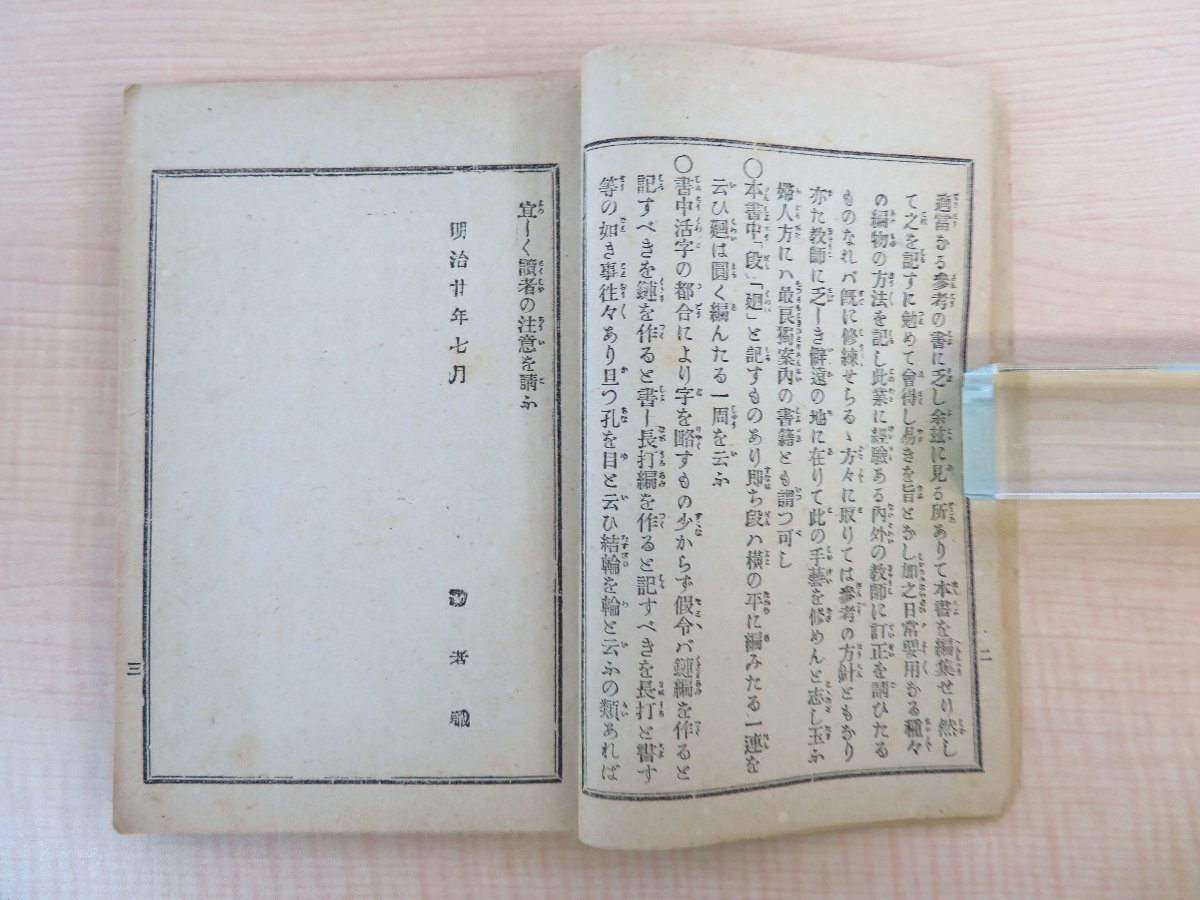 適當なる參考の書に乏し余茲に見る所ありて本書を編集せり然し
て之を記すに勉めて會得し易きを旨となし加之日常要用なる種々
の編物の方法を記し此業に經驗ある內外の教師に訂正を請ひたる
ものなれバ既に修練せらるゝ方々に取りては參考の方針ともなり
亦た教師に乏しき僻遠の地に在りて此の手藝を修めんと志し玉ふ
婦人方にハ最良獨案內の書籍とも謂つ可し
〇本書中「段」「廻」と記すものあり即ち段ハ橫の平に編みたる一連を
云ひ廻は圓く編んたる一周を云ふ
〇書中活字の都合により字を略すもの少からず假令バ鏈編を作ると
記すべきを鏈を作ると書し長打編を作ると記すべきを長打と書す
等の如き事徃々あり且つ孔を目と云ひ結輪を輪と云ふの類あれば
二
宜しく讀者の注意を請ふ
明治廿年七月
者 識
三